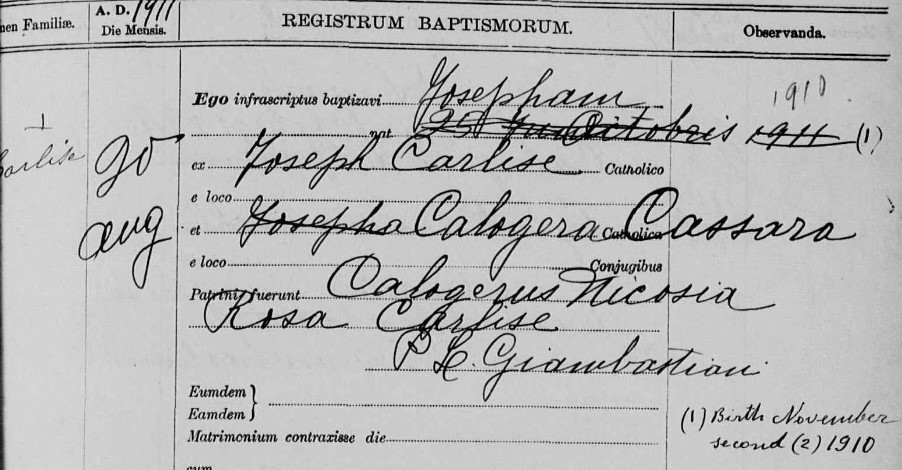 nen Familiæ.
A. D. 1911
Die Mensis.
REGISTRUM BAPTISMORUM.
Observanda.
Carlise
20
aug
Ego infrascriptus baptizavi Josepham
1910
nat 25 Octobris 1911 (1)
ex Joseph Carlise Catholico
e loco
et Josepha Calogera Cassara Catholica
e loco Conjugibus
Patrini fuerunt Calogerus Nicosia
Rosa Carlise
P. L. Giambastiani
Eumdem
Eamdem
Matrimonium contraxisse die
cum
(1) Birth November
second (2) 1910